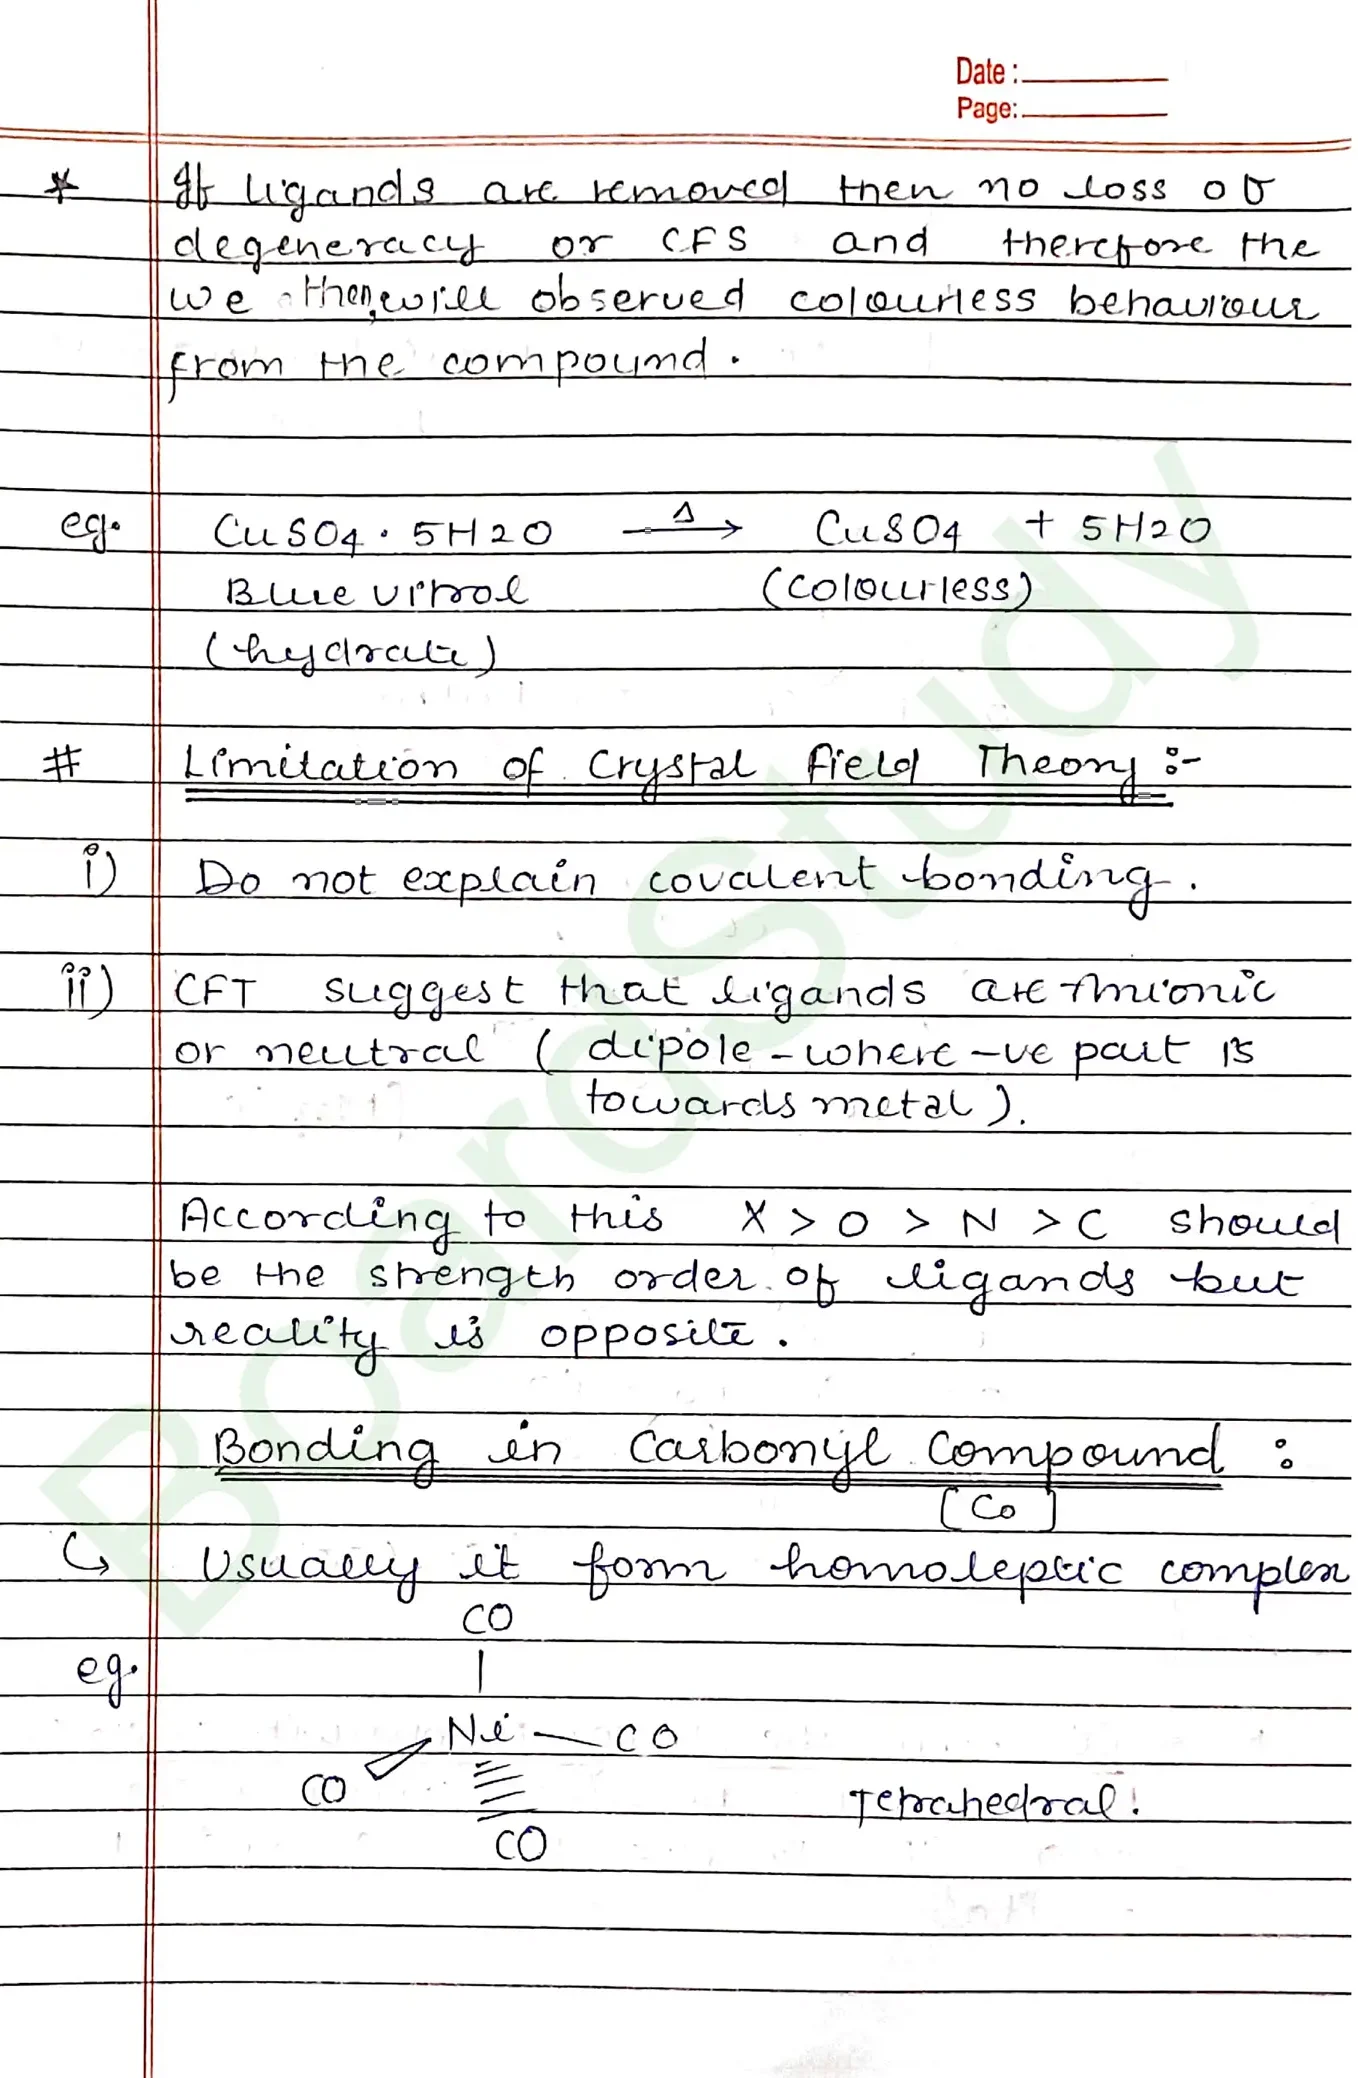 Date :
Page:
* If ligands are removed then no loss of
degeneracy or CFS and therefore the
we then, will observed colourless behaviour
from the compound.
eg. CuSO4 · 5H2O —Δ→ CuSO4 + 5H2O
Blue vitrol (colourless)
(hydrate)
# Limitation of Crystal Field Theory :-
i) Do not explain covalent bonding.
ii) CFT suggest that ligands are Anionic
or neutral ( dipole - where -ve part is
towards metal ).
According to this X > O > N > C should
be the strength order of ligands but
reality is opposite.
Bonding in Carbonyl Compound :
[CO]
↪ Usually it form homoleptic complex
CO
eg.
Ni — CO
CO Tetrahedral.
CO
BoardStudy